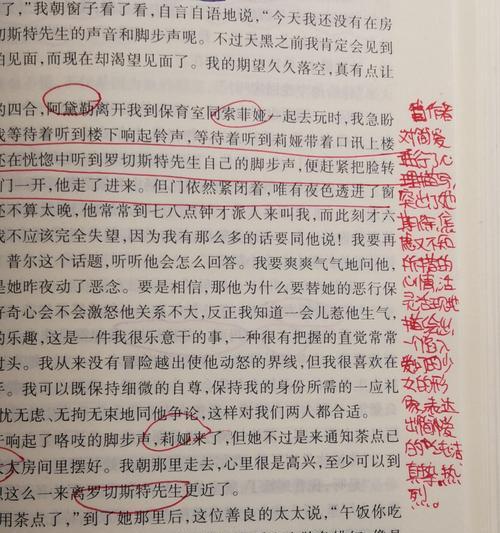 了，”我朝窗子看了看，自言自语地说，“今天我还没有在房
切斯特先生的声音和脚步声呢。不过天黑之前我肯定会见到
怕见面，而现在却渴望见面了。我的期望久久落空，真有点让
的四合，阿黛勒离开我到保育室同索菲娅一起去玩时，我急盼
我等待着听到楼下响起铃声，等待着听到莉娅带着口讯上楼
还在恍惚中听到罗切斯特先生自己的脚步声，便赶紧把脸转
门一开，他走了进来。但门依然紧闭着，唯有夜色透进了窗
还不算太晚，他常常到七八点钟才派人来叫我，而此刻才六
我不应该完全失望，因为我有那么多的话要同他说！我要再
普尔这个话题，听听他会怎么回答。我要爽爽气气地问他，
是她昨夜动了恶念。要是相信，那他为什么要替她的恶行保
好奇心会不会激怒他关系不大，反正我知道一会儿惹他生气，
的乐趣，这是一件我很乐意干的事，一种很有把握的直觉常常
过头。我从来没有冒险越出使他动怒的界线，但我很喜欢在
手。我可以既保持细微的自尊，保持我的身份所需的一应礼
忧无虑、无拘无束地同他争论，这样对我们两人都合适。
响起了咯吱的脚步声，莉娅来了，但她不过是来通知茶点已
太太房间里摆好。我朝那里走去，心里很是高兴，至少可以到
想这么一来离罗切斯特先生更近了。
用茶点了，”到了她那里后，这位善良的太太说，“午饭你吃
作者
对简爱
进行了心
理描写，
突出了她
期待，
又不知
所措的
心情，活
灵活现地
描绘出
一个陷入
爱河的少
女的形
象，表达
出简爱
的
真挚，热
烈。